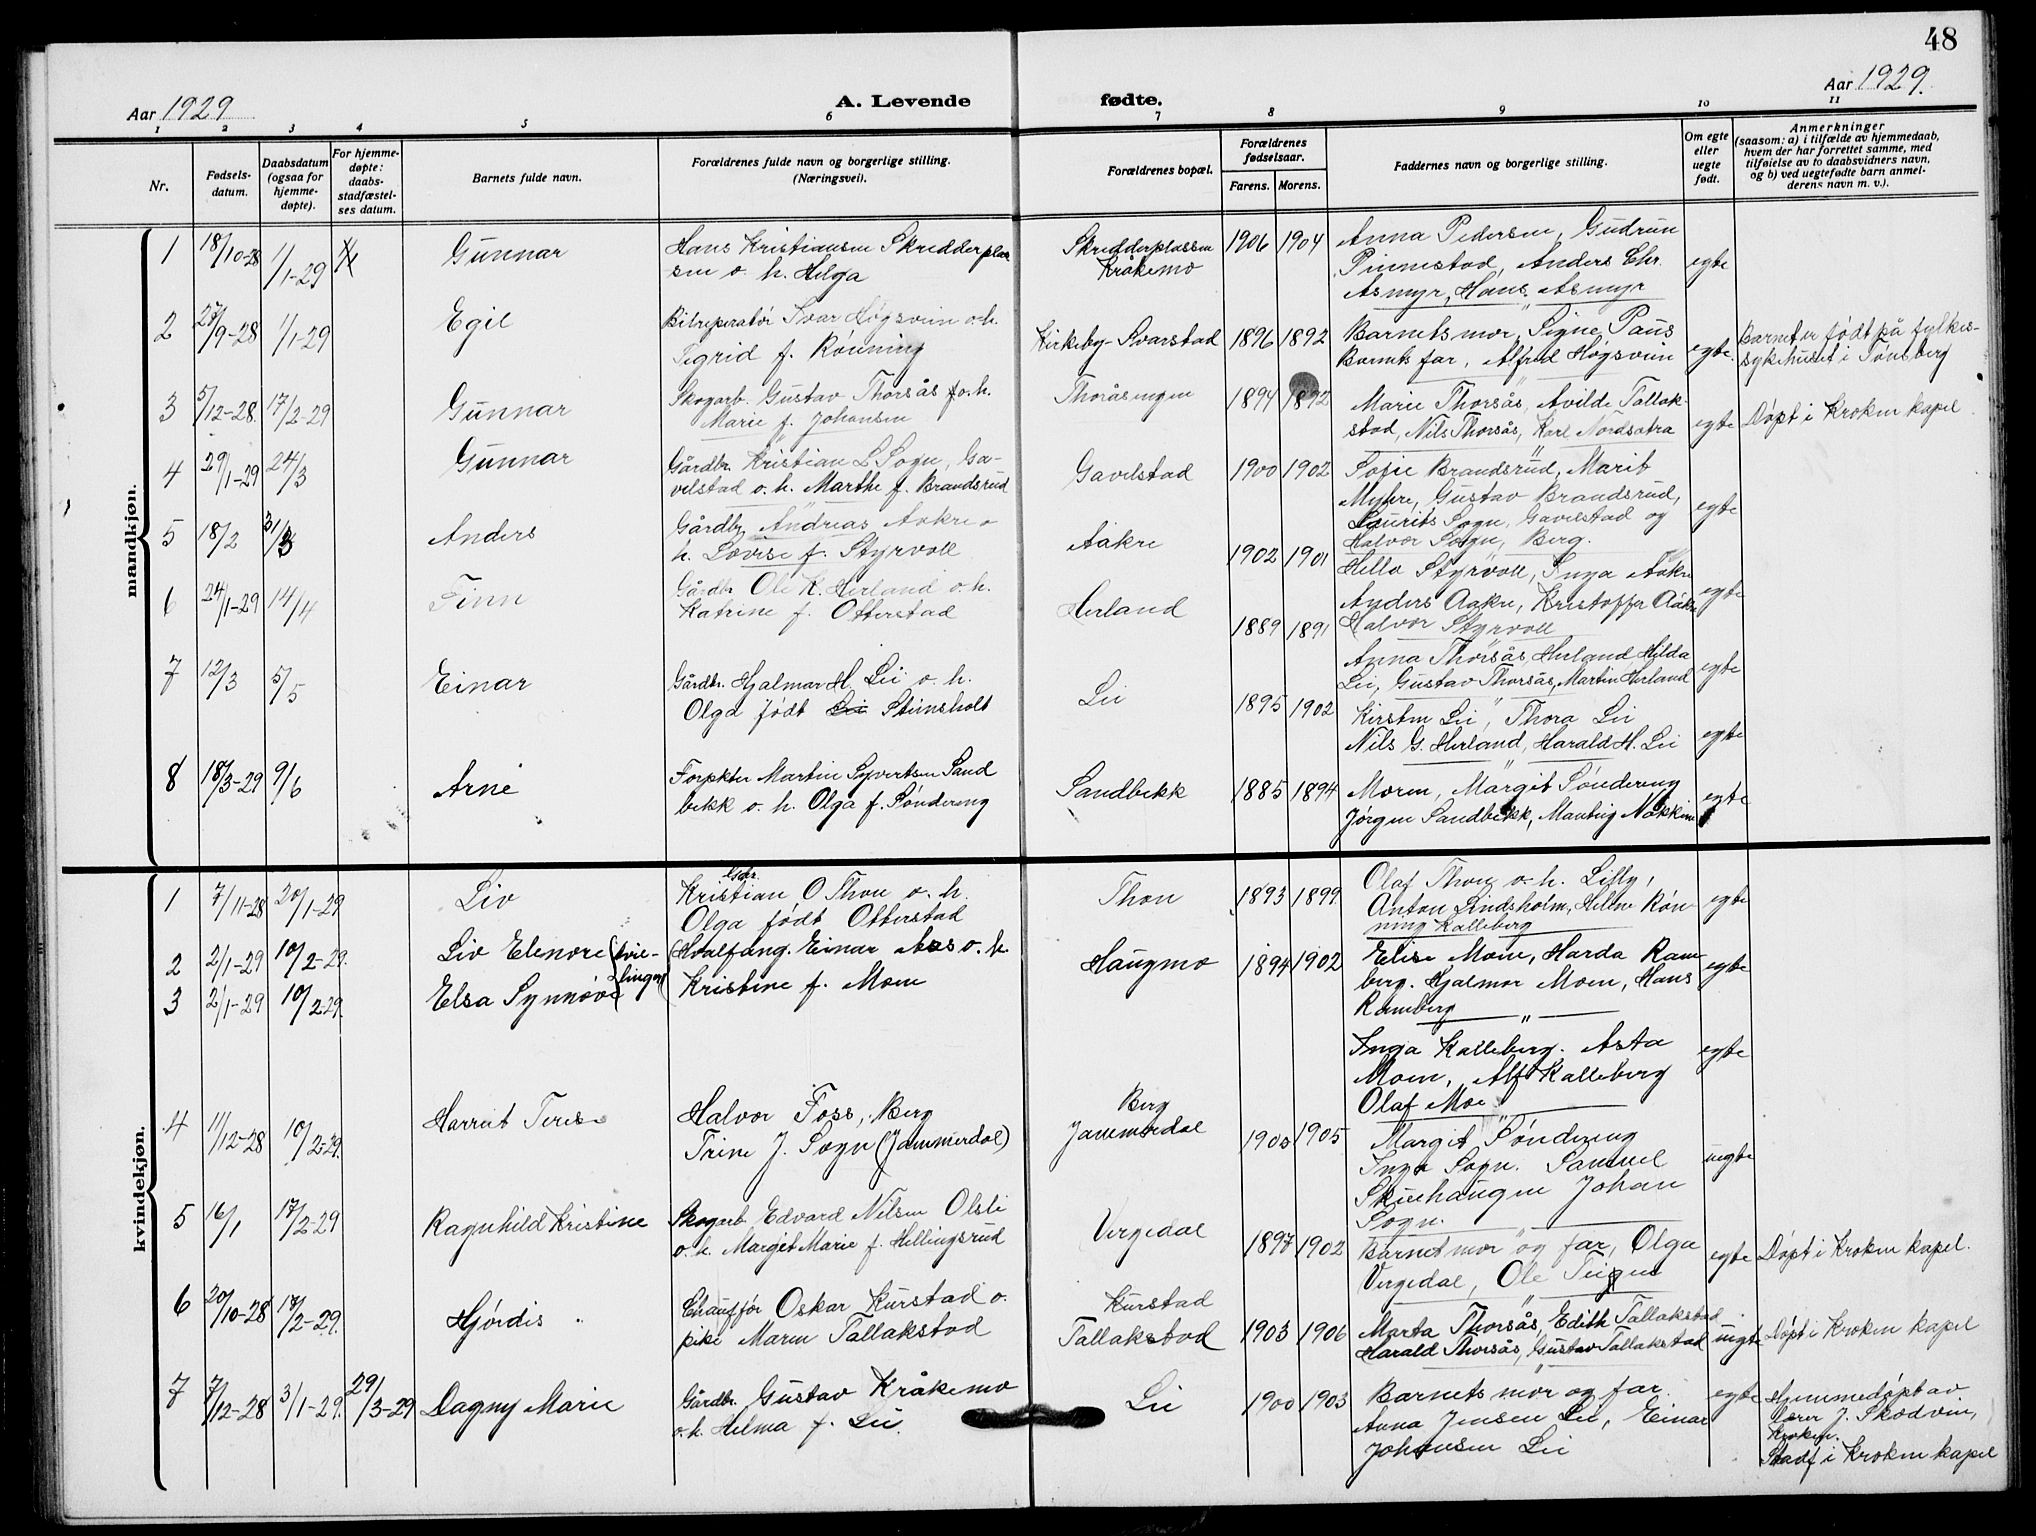 48
Aar 1929
A. Levende fødte.
Aar 1929.
1 2 3 4 5 6 7 8 9 10 11
Nr.
Fødsels-
datum.
Daabsdatum
(ogsaa for
hjemme-
døpte).
For hjemme-
døpte:
daabs-
stadfæstel-
ses datum.
Barnets fulde navn.
Forældrenes fulde navn og borgerlige stilling.
(Næringsvei).
Forældrenes bopæl.
Forældrenes
fødselsaar.
Farens. Morens.
Faddernes navn og borgerlige stilling.
Om egte
eller
uegte
født.
Anmerkninger
(saasom: a) i tilfælde av hjemmedaab,
hvem der har forrettet samme, med
tilføielse av to daabsvidners navn,
og b) ved uegtefødte barn anmel-
derens navn m. v.).
mandkjøn.
1 18/10-28 1/1-29 Gunnar
Hans Kristiansen Skredderplas
sen o. h. Helga
Skredderplassen
Kråkemo
1906 1904
Anna Pedersen, Gudrun
Pinnestad, Anders Chr.
Asmyr, Hans Asmyr
egte
2 27/9-28 1/1-29 Egil
Bilreperatör Ivar Högsveen o.h.
Sigrid f. Rönning
Kirkeby-Svarstad 1896 1892
Barnets mor, Signe Paus
Barnets far, Alfred Högsveen
egte
Barnet er født på fylkes-
sykehuset i Tönsberg
3 5/12-28. 17/2-29 Gunnar
Skogarb. Gustav Thorsås o.h.
Marie f. Johansen
Thoråsengen 1894 1892
Marie Thorsås, Avilde Tallak-
stad, Nils Thorsås, Karl Nordsætra
egte Döpt i Kroken kapel
4 29/1-29 24/3 Gunnar
Gårdbr. Kristian L Sogn, Ga-
velstad o. h. Marthe f. Brandsrud
Gavelstad 1900 1902
Sofie Brandsrud, Marit
Myhre, Gustav Brandsrud,
Laurits Sogn, Gavelstad og
Halvor Sogn, Berg.
egte
5 18/2 31/3 Anders
Gårdbr. Andreas Aakre o
h. Lovise f. Styrvoll
Aakre 1902 1901
Hella Styrvoll, Inga Aakre
Anders Aakre, Kristoffer Aakre
Halvor Styrvoll
egte
6 24/1-29 14/4 Finn
Gårdbr Ole K. Herland o. h.
Katrine f. Otterstad
Herland 1889 1891
Anna Thorsås, Herland, Hilda
Lii, Gustav Thorsås, Martin Herland
egte
7 12/3 5/5 Einar
Gårdbr. Hjalmar H. Lii o. h.
Olga født Lii Stensholt
Lii 1895 1902
Kirsten Lii, Thora Lii
Nils G. Herland, Harald H. Lii
egte
8 18/3-29 9/6 Arne
Forpkter Martin Syvertsen Sand
bekk o. h. Olga f. Söndereng
Sandbekk 1885 1894
Moren, Margit Söndereng
Jörgen Sandbekk,
egte
kvindekjøn.
1 7/11-28 20/1-29 Liv
Kristian O Thon o. h.
Olga født Otterstad
Thon 1893 1899
Olaf Thon o. h. Lilly,
Anton Lindsholm, Helene Rön-
ning Kalleberg
egte
2 2/1-29 10/2-29. Liv Elenore (tvil-
3 2/1-29 10/2-29. Elsa Synnöve linger)
Hvalfang. Einar Aas o. h.
Kristine f. Moen
Haugmo 1894 1902
Elise Moen, Harda Ram
berg. Hjalmar Moen, Hans
Ramberg
egte
Inga Kalleberg. Asta
Moen, Alf Kalleberg
Olaf Moe
egte
4 11/12-28 10/2-29. Harriet Terese
Halvor Foss, Berg
Trine J. Sogn (Jammerdal)
Berg
Jammerdal
1900 1905
Margit Söndereng
Inga Sogn. Samuel
Skuehaugen Johan
Sogn.
uegte
5 16/1 17/2-29 Ragnhild Kristine
Skogarb. Edvard Nilsen Olsli
o. h. Margit Marie f. Hellingsrud
Vergedal 1897 1902
Barnets mor og far, Olga
Vergedal, Ole Teigen
egte Döpt i Kroken kapel.
6 20/10-28 17/2-29. Hjördis
Chauffør Oskar Kurstad o.
pike Maren Tallakstad
Kurstad
Tallakstad
1903 1906
Marta Thorsås, Edith Tallakstad
Harald Thorsås, Gustav Tallakstad
uegte Döpt i Kroken kapel
7 7/12-28 3/1-29. 29/3-29 Dagny Marie
Gårdbr. Gustav Kråkemo
o.h. Helma f. Lii.
Lii 1900 1903
Barnets mor og far
Anna Jensen Lii, Einar
Johansen Lii
egte
Hjemmedöpt av
lærer J. Skodven,
Kroken.
Stadf i Kroken kapel